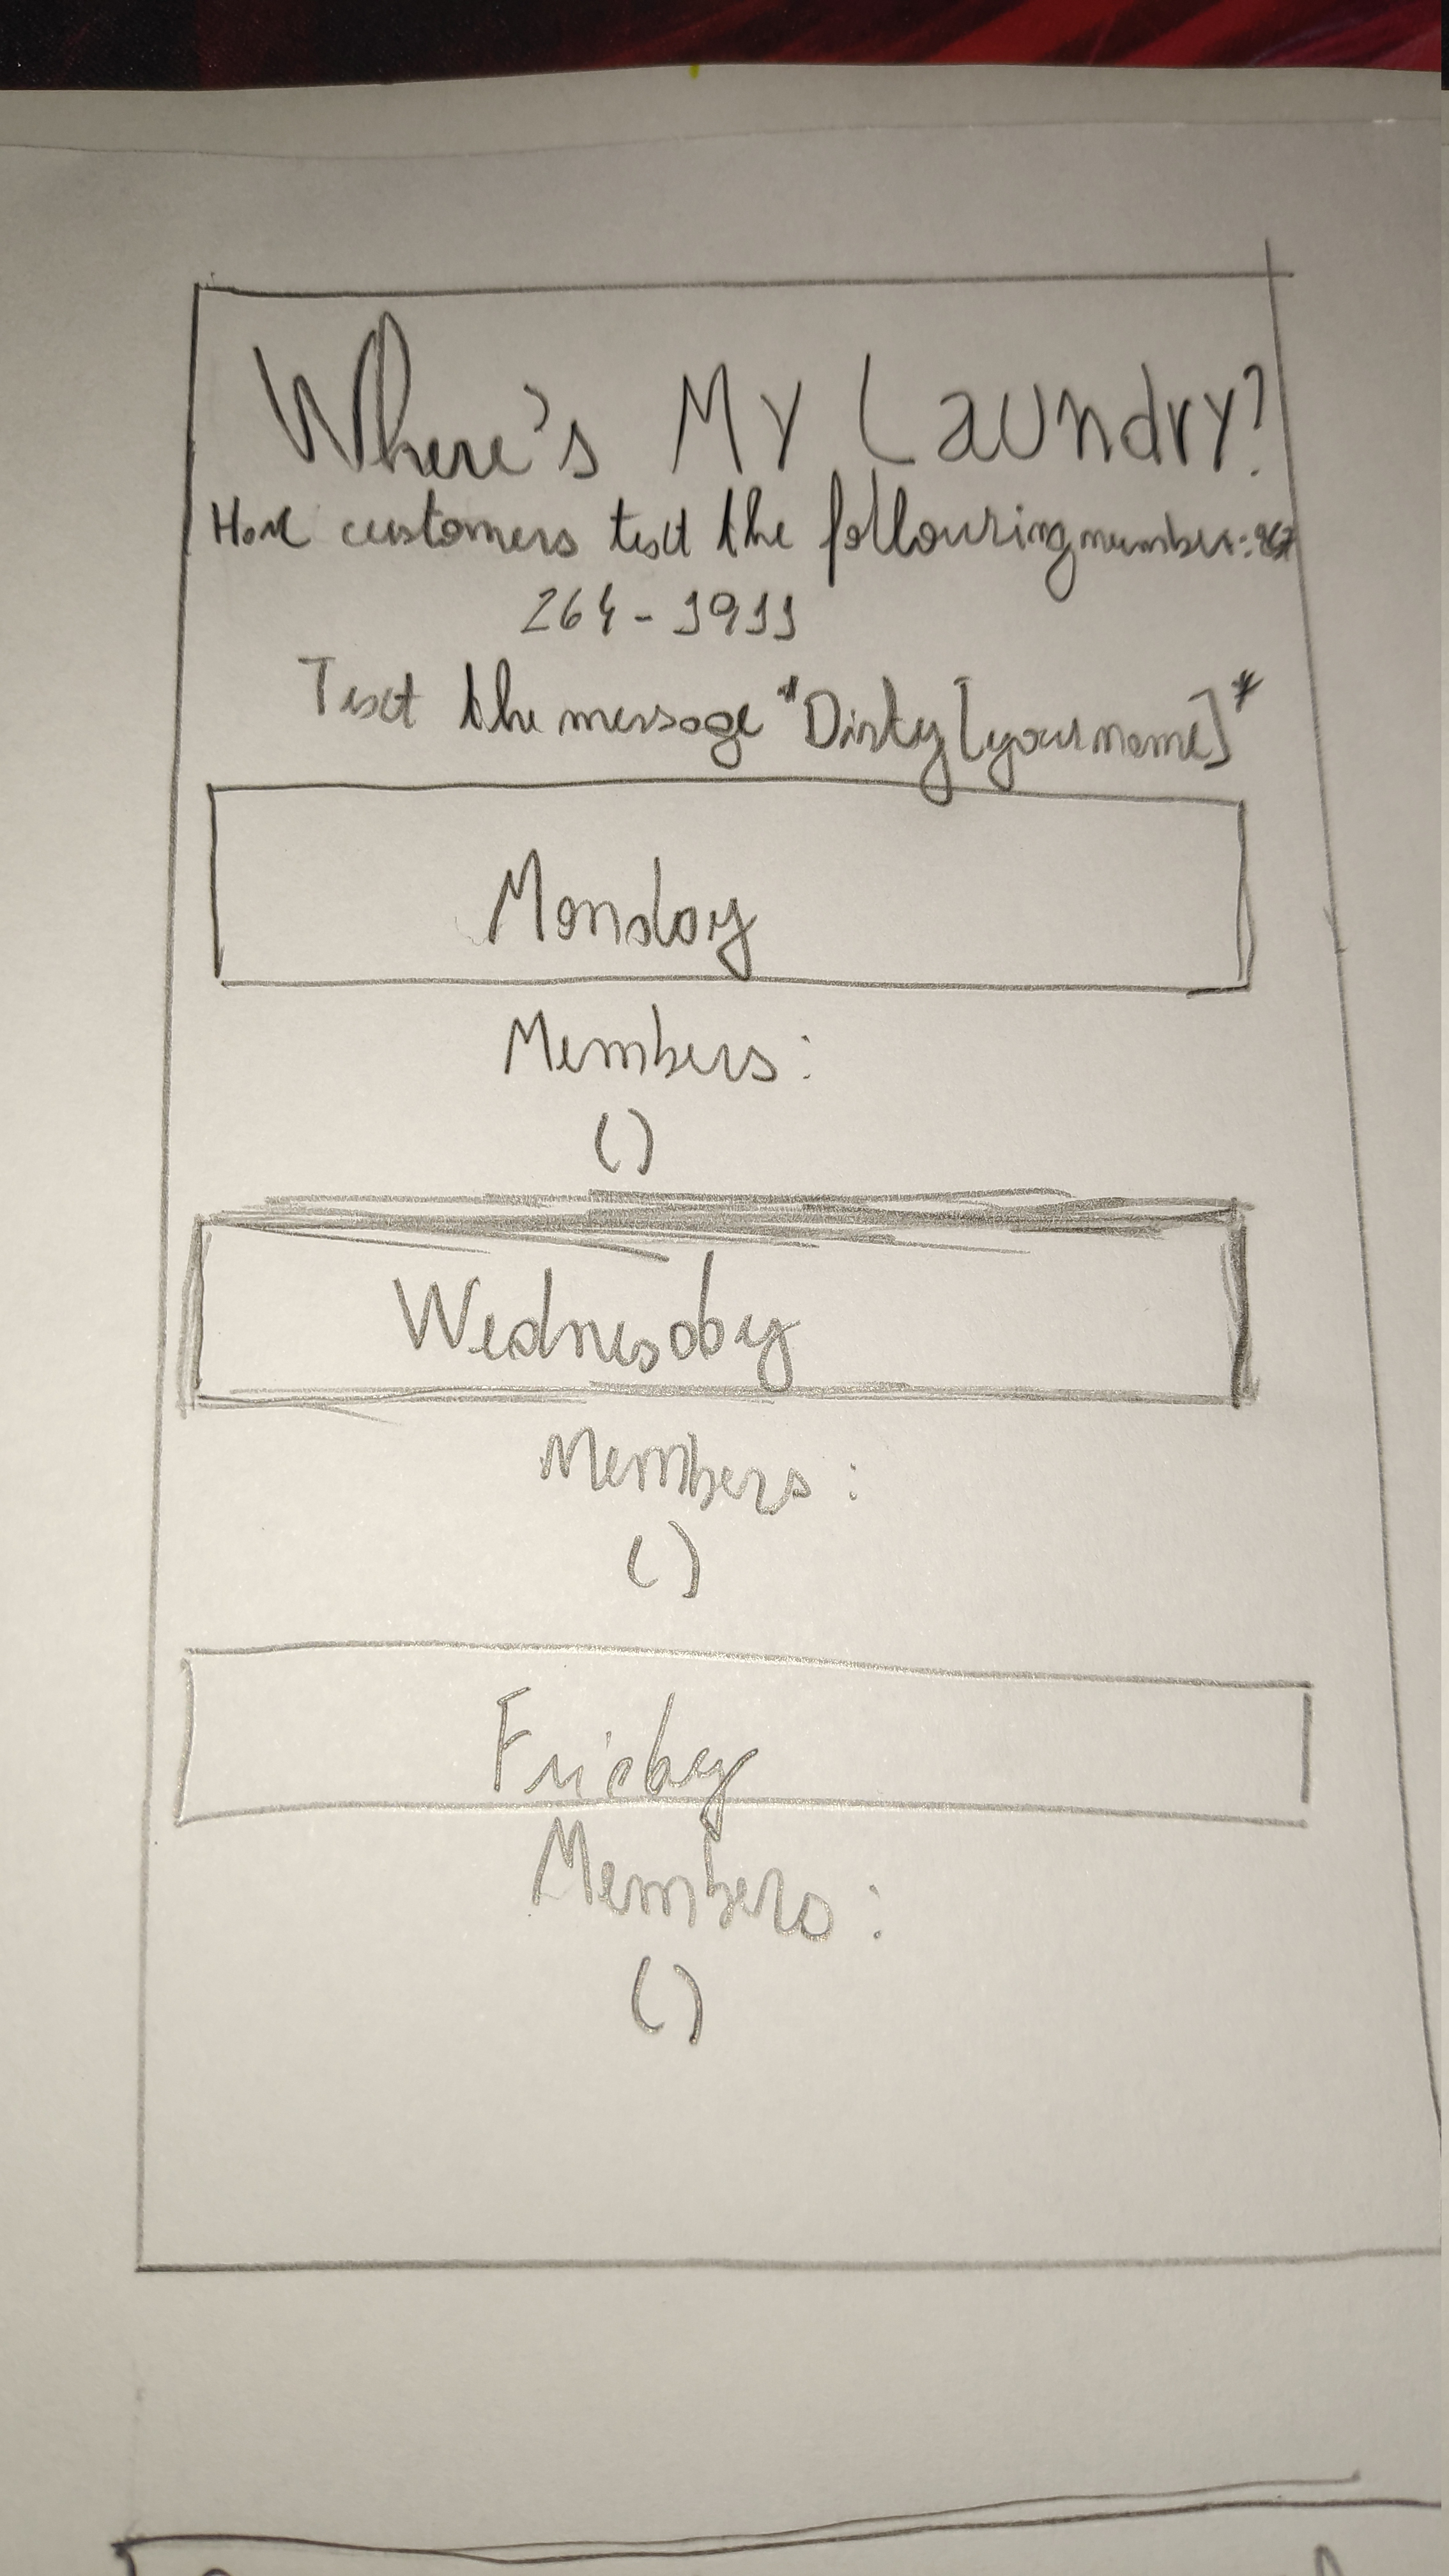 Where's My Laundry?
Have customers text the following number: 267
264-1911
Text the message "Dirty [your name]"
Monday
Members:
()
Wednesday
Members:
()
Friday
Members:
()